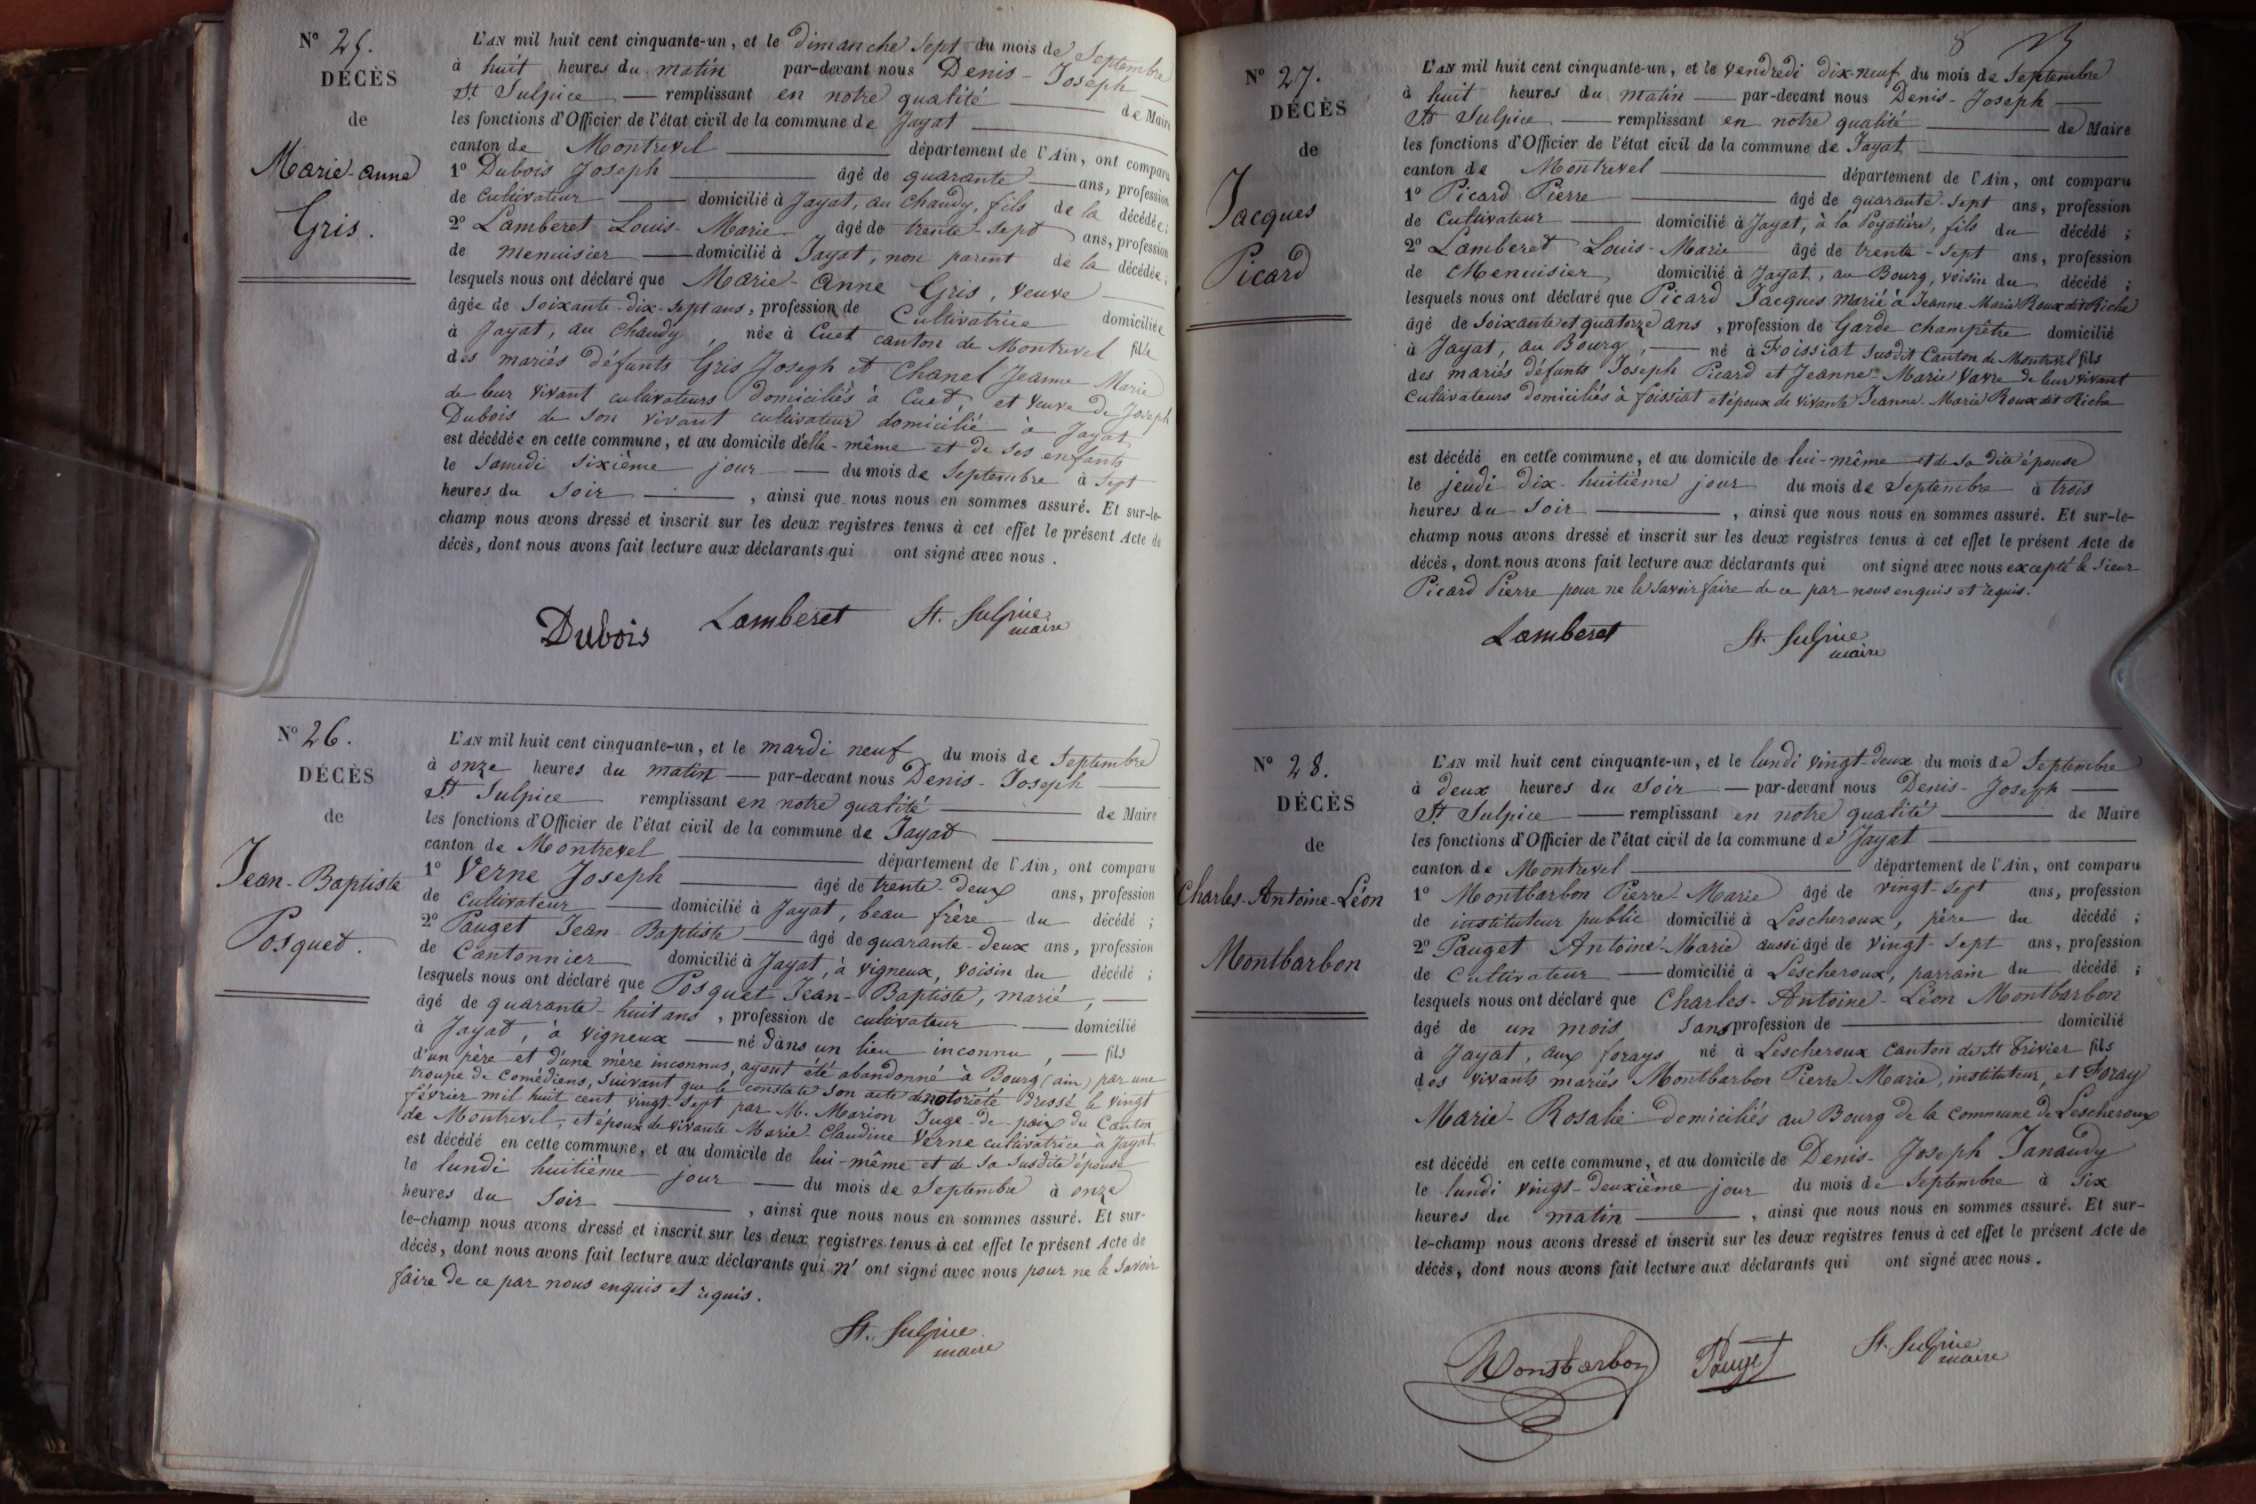 Nº 25.
DÉCÈS
de
Marie-anne
Gris.
L'AN mil huit cent cinquante-un, et le dimanche sept du mois de Septembre
à huit heures du matin par-devant nous Denis-Joseph
St Sulpice remplissant en notre qualité de Maire
les fonctions d'Officier de l'état civil de la commune de Jayat
canton de Montrevel département de l'Ain, ont comparu
1º Dubois Joseph âgé de quarante ans, profession
de cultivateur domicilié à Jayat, au Chaudy, fils de la décédée;
2º Lamberet Louis-Marie âgé de trente-sept ans, profession
de menuisier domicilié à Jayat, non parent de la décédée;
lesquels nous ont déclaré que Marie-anne Gris, veuve
âgée de soixante-dix-sept ans, profession de Cultivatrice domiciliée
à Jayat, au Chaudy, née à Cuet canton de Montrevel fille
des mariés défunts Gris Joseph et Chanel Jeanne Marie
de leur vivant cultivateurs domiciliés à Cuet, et veuve de Joseph
Dubois de son vivant cultivateur domicilié à Jayat
est décédée en cette commune, et au domicile d'elle-même et de ses enfants
le samedi sixième jour du mois de Septembre à sept
heures du soir, ainsi que nous nous en sommes assuré. Et sur-le-
champ nous avons dressé et inscrit sur les deux registres tenus à cet effet le présent Acte de
décès, dont nous avons fait lecture aux déclarants qui ont signé avec nous.
Dubois Lamberet St. Sulpice
maire
Nº 26.
DÉCÈS
de
Jean-Baptiste
Posquet.
L'AN mil huit cent cinquante-un, et le mardi neuf du mois de Septembre
à onze heures du matin par-devant nous Denis-Joseph
St Sulpice remplissant en notre qualité de Maire
les fonctions d'Officier de l'état civil de la commune de Jayat
canton de Montrevel département de l'Ain, ont comparu
1º Verne Joseph âgé de trente-deux ans, profession
de cultivateur domicilié à Jayat, beau frère du décédé;
2º Pauget Jean-Baptiste âgé de quarante-deux ans, profession
de Cantonnier domicilié à Jayat, à Vigneux, voisin du décédé;
lesquels nous ont déclaré que Posquet Jean-Baptiste, marié,
âgé de quarante-huit ans, profession de cultivateur domicilié
à Jayat, à Vigneux né dans un lieu inconnu, fils
d'un père et d'une mère inconnus, ayant été abandonné à Bourg (ain) par une
troupe de Comédiens, suivant que le constate son acte de notoriété dressé le vingt
février mil huit cent vingt-sept par M. Marion Juge-de-paix du Canton
de Montrevel, et époux de vivante Marie-Claudine Verne cultivatrice à Jayat
est décédé en cette commune, et au domicile de lui-même et de sa susdite épouse
le lundi huitième jour du mois de Septembre à onze
heures du soir, ainsi que nous nous en sommes assuré. Et sur-
le-champ nous avons dressé et inscrit sur les deux registres tenus à cet effet le présent Acte de
décès, dont nous avons fait lecture aux déclarants qui n'ont signé avec nous pour ne le savoir
faire de ce par nous enquis et requis.
St. Sulpice
maire
8
Nº 27.
DÉCÈS
de
Jacques
Picard
L'AN mil huit cent cinquante-un, et le vendredi dix-neuf du mois de Septembre
à huit heures du matin par-devant nous Denis-Joseph
St Sulpice remplissant en notre qualité de Maire
les fonctions d'Officier de l'état civil de la commune de Jayat
canton de Montrevel département de l'Ain, ont comparu
1º Picard Pierre âgé de quarante-sept ans, profession
de Cultivateur domicilié à Jayat, à la Poyatière, fils du décédé;
2º Lamberet Louis-Marie âgé de trente-sept ans, profession
de Menuisier, domicilié à Jayat, au Bourg, voisin du décédé;
lesquels nous ont déclaré que Picard Jacques marié à Jeanne-Marie Roux dit Riche
âgé de soixante et quatorze ans, profession de Garde champêtre domicilié
à Jayat, au Bourg, né à Foissiat susdit Canton de Montrevel fils
des mariés défunts Joseph Picard et Jeanne-Marie Vavre de leur vivant
Cultivateurs domiciliés à foissiat et époux de vivante Jeanne-Marie Roux dit Riche
est décédé en cette commune, et au domicile de lui-même et de sa dite épouse
le jeudi dix-huitième jour du mois de Septembre à trois
heures du soir, ainsi que nous nous en sommes assuré. Et sur-le-
champ nous avons dressé et inscrit sur les deux registres tenus à cet effet le présent Acte de
décès, dont nous avons fait lecture aux déclarants qui ont signé avec nous excepté le sieur
Picard Pierre pour ne le savoir faire de ce par nous enquis et requis.
Lamberet St. Sulpice
maire
Nº 28.
DÉCÈS
de
Charles-Antoine-Léon
Montbarbon
L'AN mil huit cent cinquante-un, et le lundi vingt-deux du mois de Septembre
à deux heures du soir par-devant nous Denis-Joseph
St Sulpice remplissant en notre qualité de Maire
les fonctions d'Officier de l'état civil de la commune de Jayat
canton de Montrevel département de l'Ain, ont comparu
1º Montbarbon Pierre-Marie âgé de vingt-sept ans, profession
de instituteur public domicilié à Lescheroux, père du décédé;
2º Pauget Antoine-Marie aussi âgé de vingt-sept ans, profession
de cultivateur domicilié à Lescheroux, parrain du décédé;
lesquels nous ont déclaré que Charles-Antoine-Léon Montbarbon
âgé de un mois sans profession de domicilié
à Jayat, aux forays né à Lescheroux canton de St Trivier fils
des vivants mariés Montbarbon Pierre-Marie, instituteur, et Foray
Marie-Rosalie domiciliés au Bourg de la commune de Lescheroux
est décédé en cette commune, et au domicile de Denis-Joseph Janaudy
le lundi vingt-deuxième jour du mois de Septembre à six
heures du matin, ainsi que nous nous en sommes assuré. Et sur-
le-champ nous avons dressé et inscrit sur les deux registres tenus à cet effet le présent Acte de
décès, dont nous avons fait lecture aux déclarants qui ont signé avec nous.
Montbarbon Pauget St. Sulpice
maire